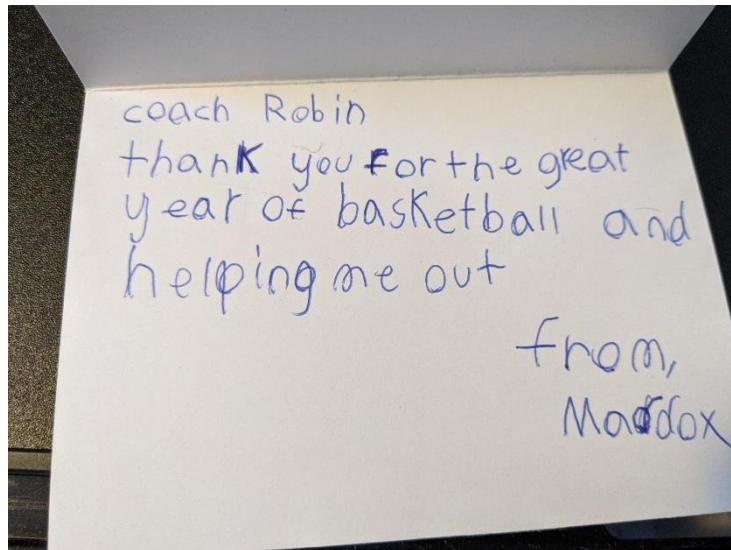 coach Robin
thank you for the great
year of basketball and
helping me out
from,
Maddox